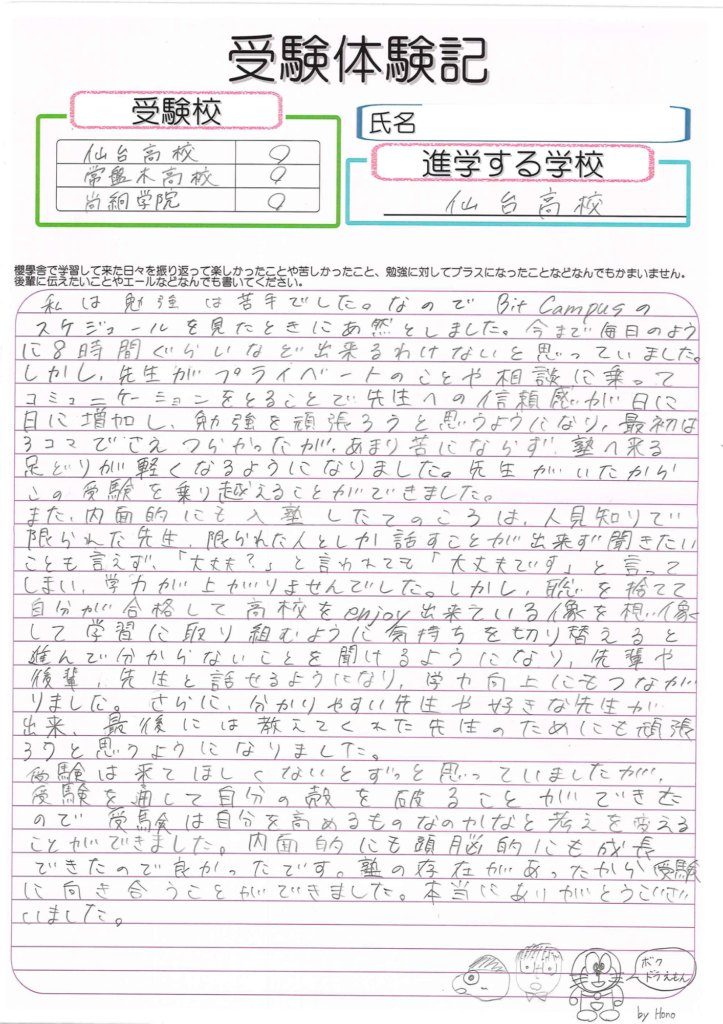 受験体験記
受験校
仙台高校 ○
常盤木高校 ○
尚絅学院 ○
氏名
進学する学校
仙台高校
櫻學舎で学習して来た日々を振り返って楽しかったことや苦しかったこと、勉強に対してプラスになったことなどなんでもかまいません。
後輩に伝えたいことやエールなどなんでも書いてください。
私は勉強は苦手でした。なので Bit Campusの
スケジュールを見たときにあ然としました。今まで毎日のよう
に8時間ぐらいなど出来るわけないと思っていました。
しかし、先生がプライベートのことや相談に乗って
コミュニケーションをとることで先生への信頼感が日に
日に増加し、勉強を頑張ろうと思うようになり、最初は
3コマでさえつらかったが、あまり苦にならず、塾へ来る
足どりが軽くなるようになりました。先生がいたから
この受験を乗り越えることができました。
また、内面的にも入塾したてのころは、人見知りで
限られた先生、限られた人としか話すことが出来ず聞きたい
ことも言えず、「大丈夫?」と言われても「大丈夫です」と言って
しまい、学力が上がりませんでした。しかし、恥を捨てて
自分が合格して高校をenjoy出来ている像を想像
して学習に取り組むように気持ちを切り替えると
進んで分からないことを聞けるようになり、先輩や
後輩、先生と話せるようになり、学力向上にもつなが
りました。さらに、分かりやすい先生や好きな先生が
出来、最後には教えてくれた先生のためにも頑張
ろうと思うようになりました。
受験は来てほしくないとずっと思っていましたが、
受験を通して自分の殻を破ることができた
ので受験は自分を高めるものなのかなと考えを変える
ことができました。内面的にも頭脳的にも成長
できたので良かったです。塾の存在があったから受験
に向き合うことができました。本当にありがとうござ
いました。
ボク
ドラえもん
by Hono